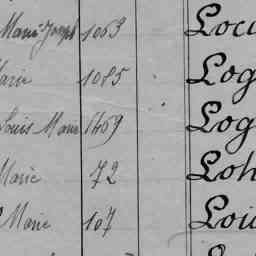 Marie Joseph 1063 Locu
Marie 1085 Log
Louis Marie 1469 Log
Marie 72 Loh
Marie 107 Loi